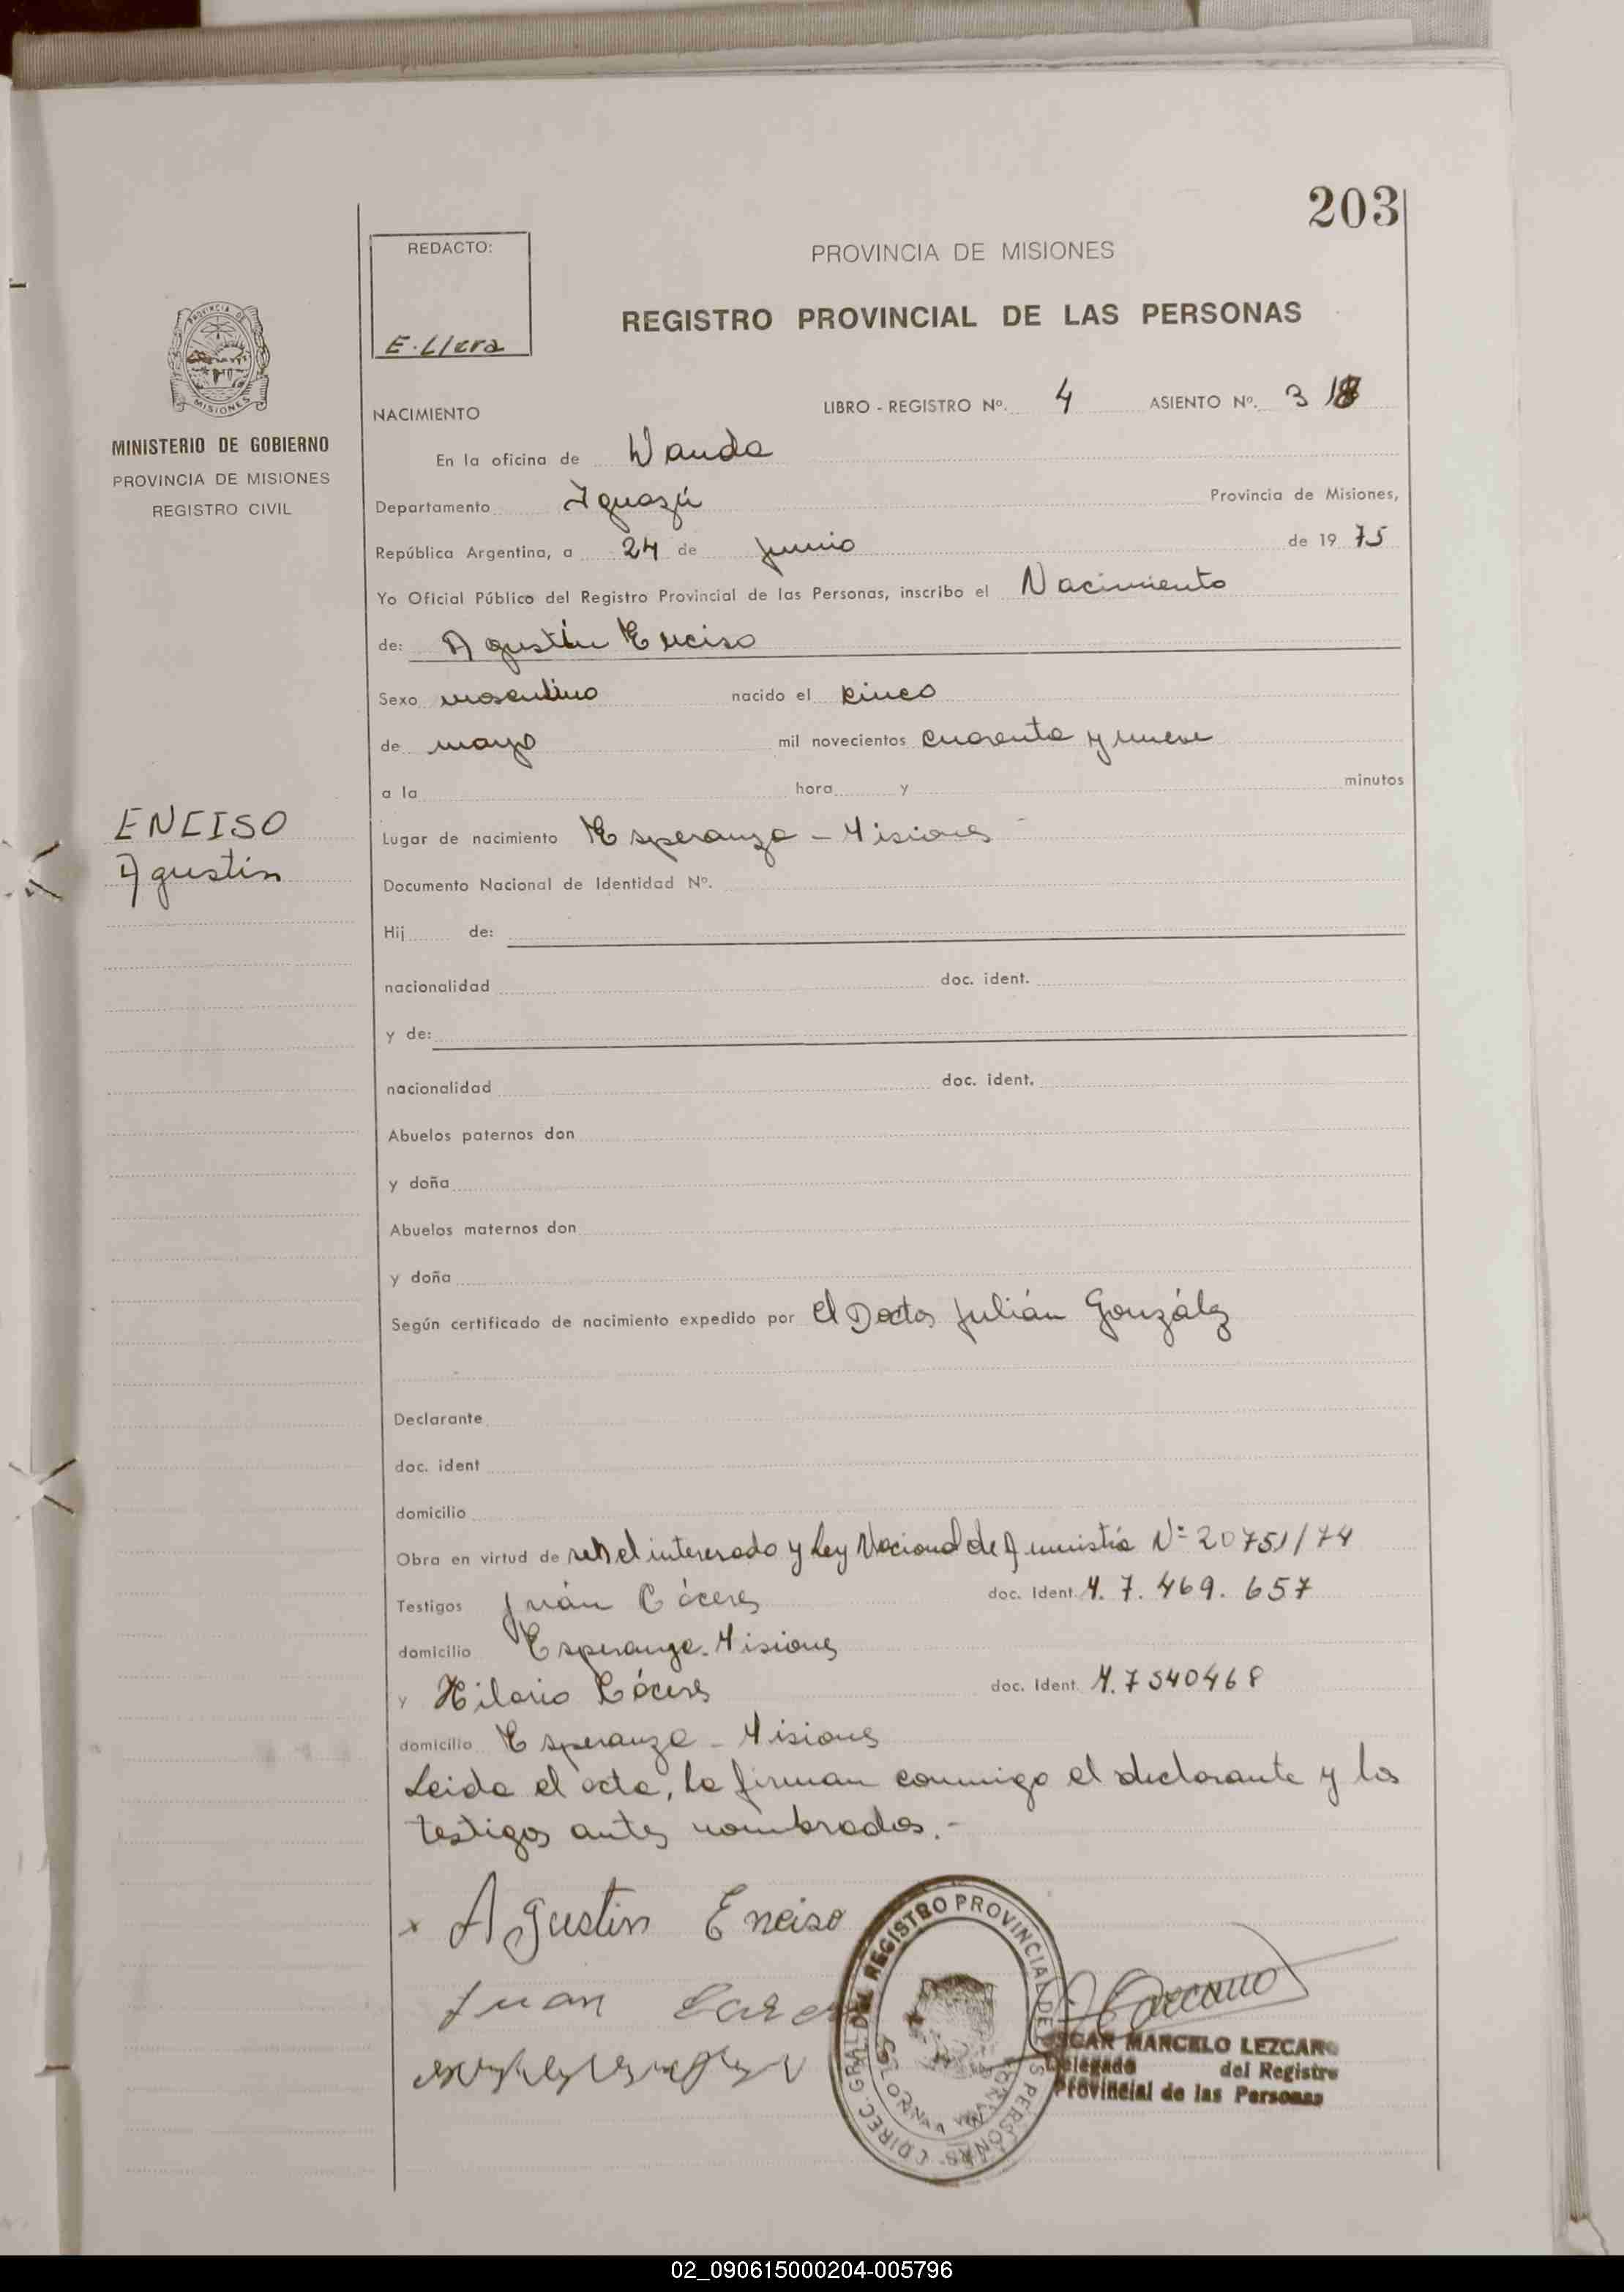 203
REDACTO:
E. Llera
PROVINCIA DE MISIONES
REGISTRO PROVINCIAL DE LAS PERSONAS
PROVINCIA DE
MISIONES
MINISTERIO DE GOBIERNO
PROVINCIA DE MISIONES
REGISTRO CIVIL
NACIMIENTO LIBRO - REGISTRO Nº. 4 ASIENTO Nº. 318
En la oficina de Wanda
Departamento Iguazú Provincia de Misiones,
República Argentina, a 24 de junio de 19 75
Yo Oficial Público del Registro Provincial de las Personas, inscribo el Nacimiento
de: Agustín Enciso
Sexo masculino nacido el cinco
de mayo mil novecientos cuarenta y nueve
a la hora y minutos
ENCISO
Agustín
Lugar de nacimiento Esperanza - Misiones
Documento Nacional de Identidad Nº.
Hij de:
nacionalidad doc. ident.
y de:
nacionalidad doc. ident.
Abuelos paternos don
y doña
Abuelos maternos don
y doña
Según certificado de nacimiento expedido por el Doctor Julián González
Declarante
doc. ident
domicilio
Obra en virtud de el interesado y Ley Nacional de Amnistía Nº 20751/74
Testigos Juán Cáceres doc. Ident. M. 7.469.657
domicilio Esperanza - Misiones
y Hilario Cáceres doc. Ident. M. 7540468
domicilio Esperanza - Misiones
Leida el acta, la firman conmigo el declarante y los
testigos antes nombrados.-
x Agustin Enciso
Juan
DIREC. GRAL. DEL REGISTRO PROVINCIAL DE LAS PERSONAS
OSCAR MARCELO LEZCANO
Delegado del Registro
Provincial de las Personas
02_090615000204-005796